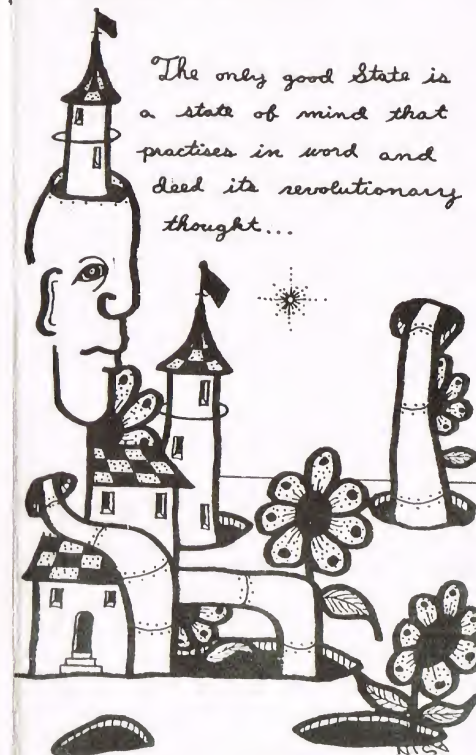 The only good State is
a state of mind that
practises in word and
deed its revolutionary
thought...